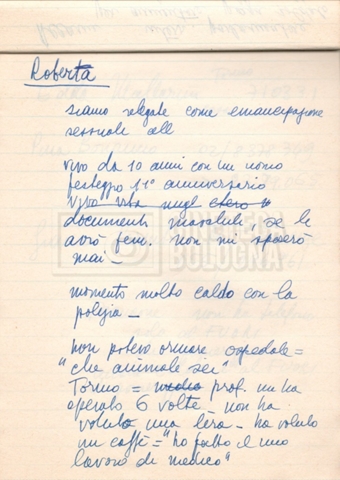 Roberta
siamo relegate come emancipazione
sessuale all
vivo da 10 anni con un uomo
festeggio 11° anniversario
documenti maschili, se le
avrò fem. non mi sposerò
mai –
momento molto caldo con la
polizia –
non potevo orinare ospedale =
"che animale sei"
Torino = prof. mi ha
operato 6 volte – non ha
voluto una lira – ha voluto
un caffè = "ho fatto il mio
lavoro di medico"
CINETECA
BOLOGNA